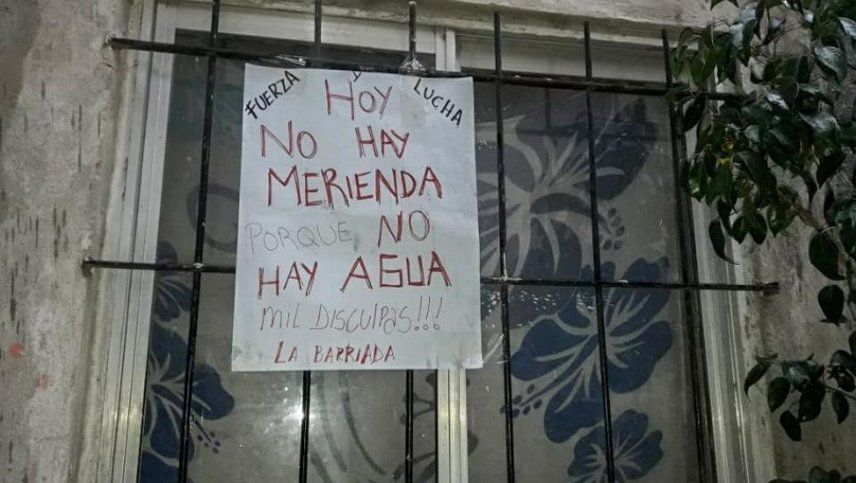 FUERZA
Y
LUCHA
HOY
NO HAY
MERIENDA
PORQUE NO
HAY AGUA
MIL DISCULPAS!!!
LA BARRIADA